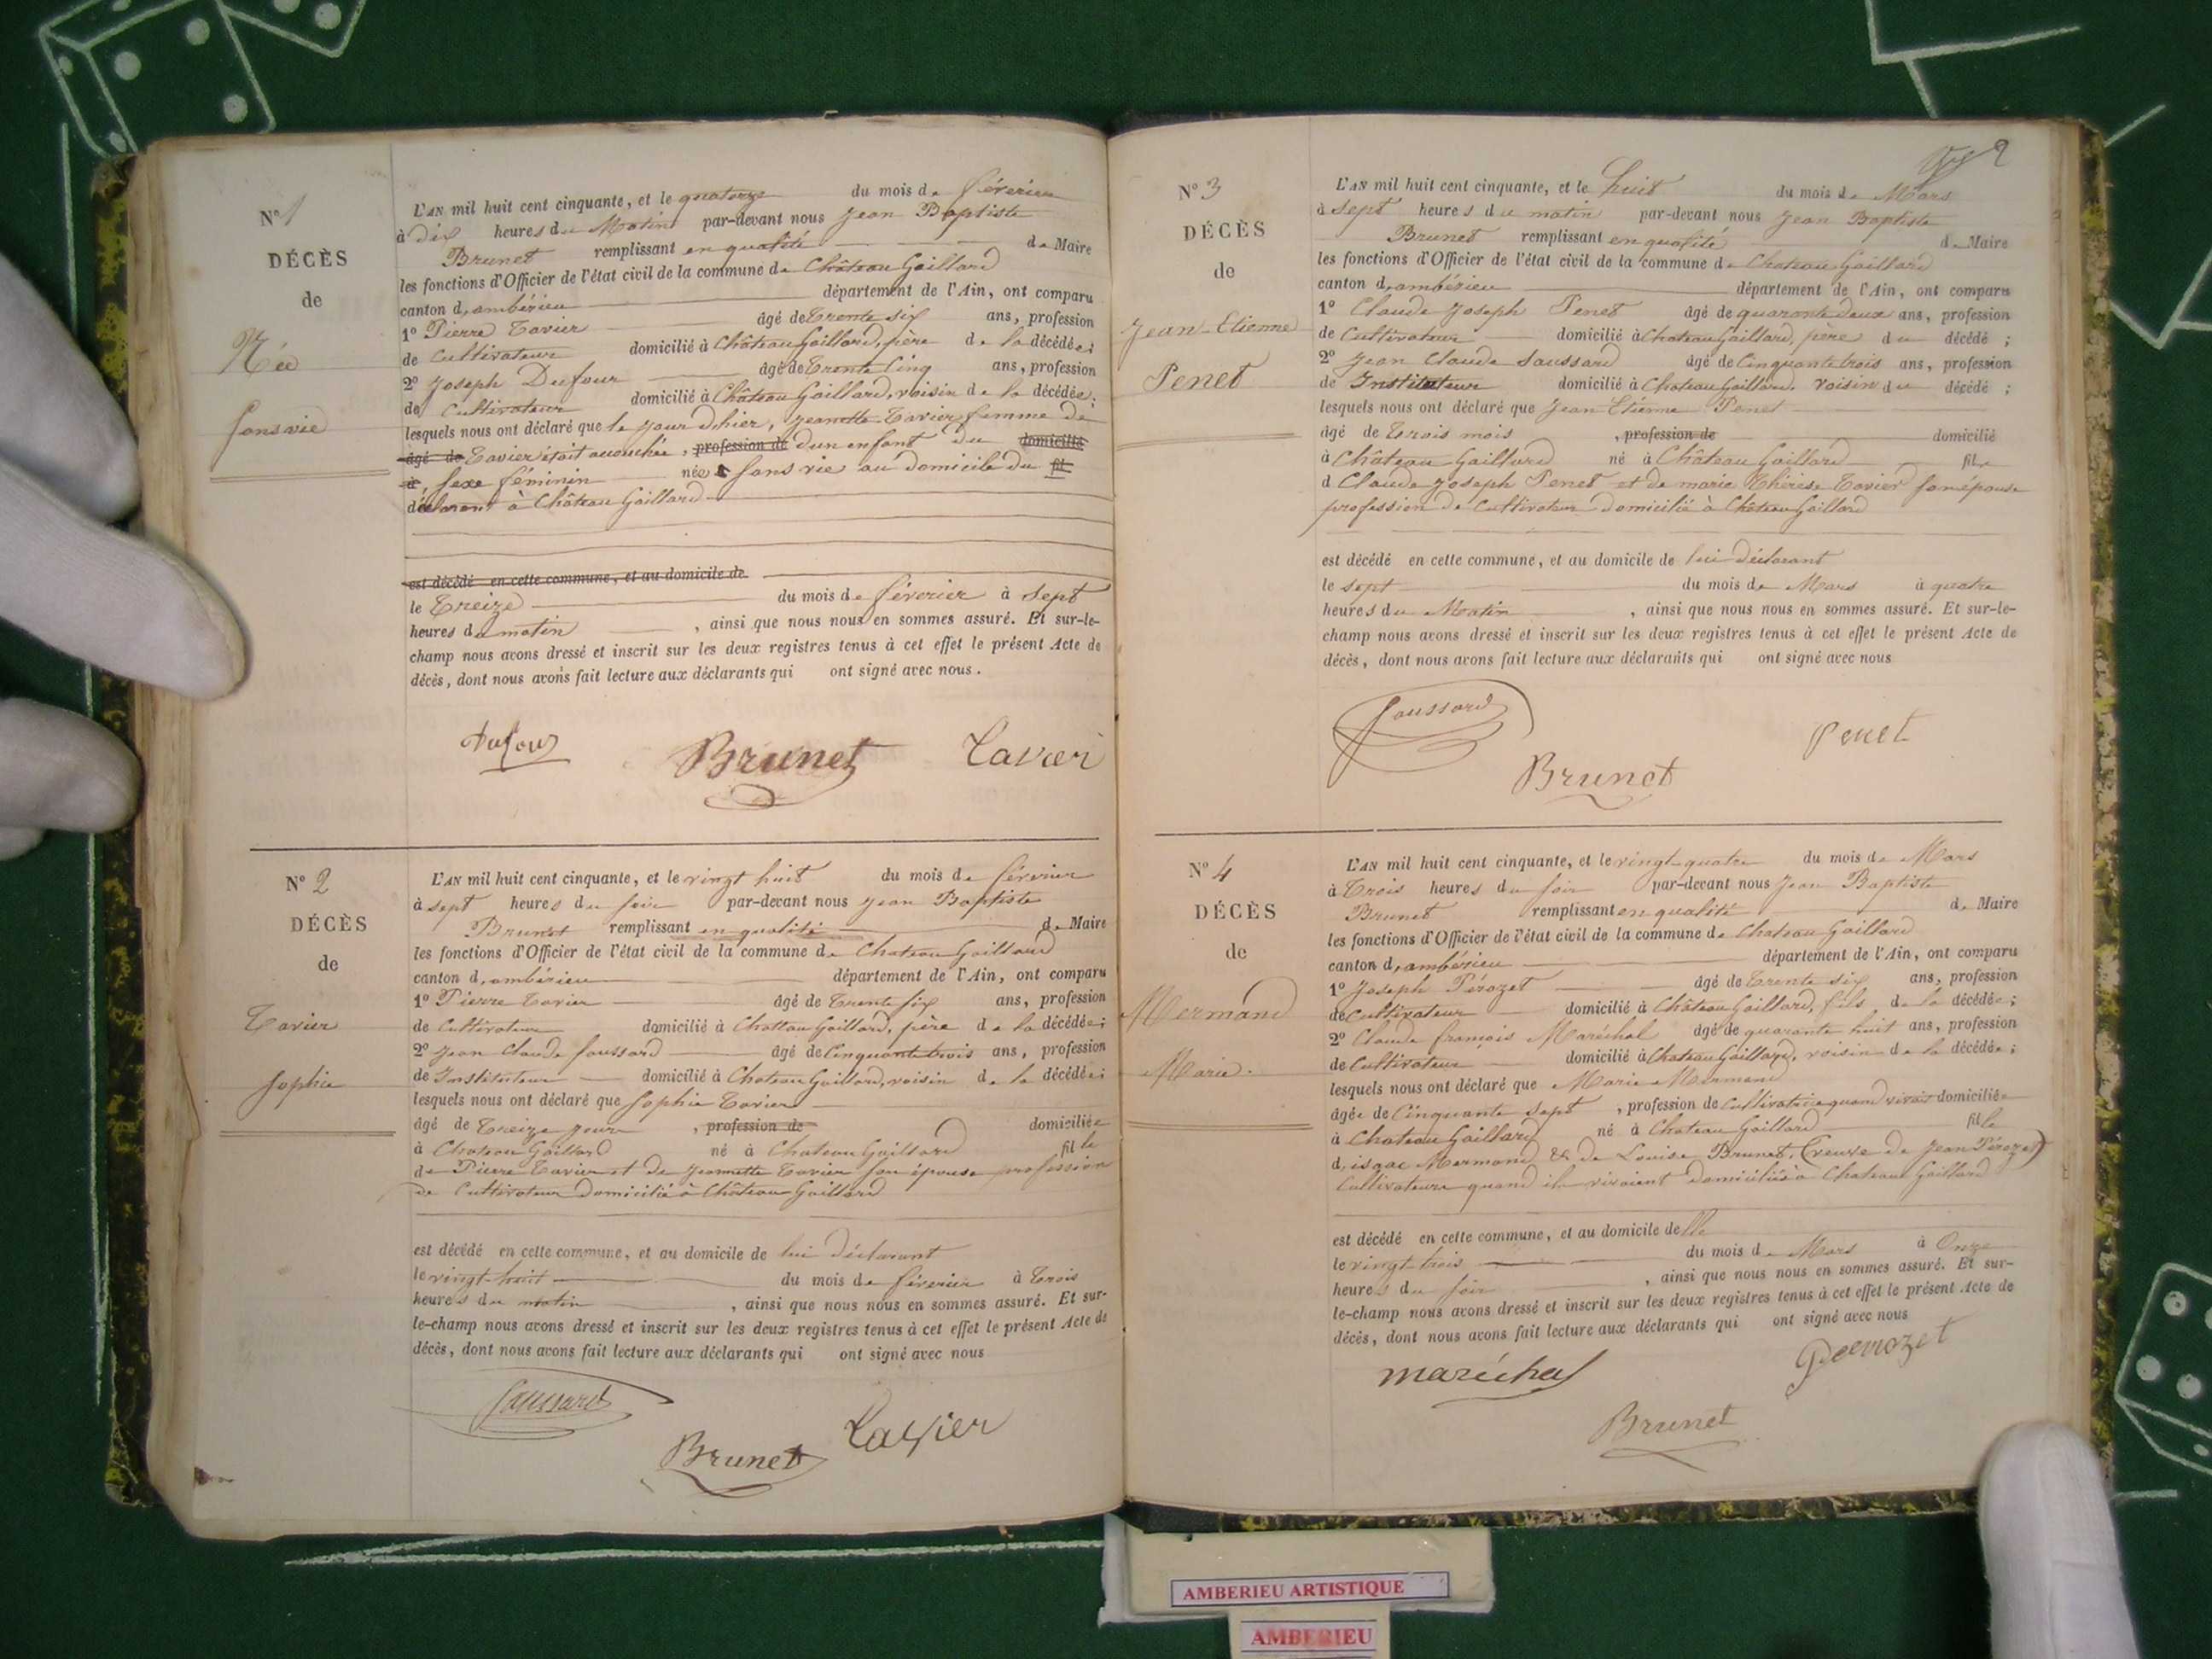 N° 1
DÉCÈS
de
Née
sans vie
L'AN mil huit cent cinquante, et le quatorze du mois de féverier
à dix heures du Matin par-devant nous Jean Baptiste
Brunet remplissant en qualité de Maire
les fonctions d'Officier de l'état civil de la commune de Château Gaillard
canton d'ambérieu département de l'Ain, ont comparu
1° Pierre Tavier âgé de Trente six ans, profession
de Cultivateur domicilié à Château Gaillard, père de la décédée;
2° Joseph Dufour âgé de Trente Cinq ans, profession
de Cultivateur domicilié à Château Gaillard, voisin de la décédée;
lesquels nous ont déclaré que le jour d'hier, Jeannette Tavier femme de
âgé de Tavier était accouchée, profession de d'un enfant du domicilié
à, sexe féminin née sans vie au domicile du fil
déclarant à Château Gaillard
est décédé en cette commune, et au domicile de
le Treize du mois de féverier à Sept
heures du matin, ainsi que nous nous en sommes assuré. Et sur-le-
champ nous avons dressé et inscrit sur les deux registres tenus à cet effet le présent Acte de
décès, dont nous avons fait lecture aux déclarants qui ont signé avec nous.
Dufour Brunet Tavier
N° 2
DÉCÈS
de
Tavier
Sophie
L'AN mil huit cent cinquante, et le vingt huit du mois de féverier
à sept heures du soir par-devant nous Jean Baptiste
Brunet remplissant en qualité de Maire
les fonctions d'Officier de l'état civil de la commune de Chateau Gaillard
canton d'ambérieu département de l'Ain, ont comparu
1° Pierre Tavier âgé de Trente six ans, profession
de Cultivateur domicilié à Chattau Gaillard, père de la décédée;
2° Jean Claude Saussard âgé de Cinquante trois ans, profession
de Instituteur domicilié à Chateau Gaillard, voisin de la décédée;
lesquels nous ont déclaré que Sophie Tavier
âgé de Treize jours, profession de domiciliée
à Chateau Gaillard né à Chateau Gaillard fille
de Pierre Tavier et de Jeannette Tavier son épouse profession
de Cultivateur domicilié à Château Gaillard
est décédé en cette commune, et au domicile de lui déclarant
le vingt-huit du mois de féverier à Trois
heures du matin, ainsi que nous nous en sommes assuré. Et sur-
le-champ nous avons dressé et inscrit sur les deux registres tenus à cet effet le présent Acte de
décès, dont nous avons fait lecture aux déclarants qui ont signé avec nous
Saussard Brunet Tavier
2
N° 3
DÉCÈS
de
Jean-Etienne
Penet
L'AN mil huit cent cinquante, et le huit du mois de Mars
à sept heures du matin par-devant nous Jean Baptiste
Brunet remplissant en qualité de Maire
les fonctions d'Officier de l'état civil de la commune de Chateau Gaillard
canton d'ambérieu département de l'Ain, ont comparu
1° Claude Joseph Penet âgé de quarante deux ans, profession
de Cultivateur domicilié à Chateau Gaillard, père du décédé;
2° Jean Claude Saussard âgé de Cinquante trois ans, profession
de Instituteur domicilié à Chateau Gaillard, voisin du décédé;
lesquels nous ont déclaré que Jean Etienne Penet
âgé de Trois mois, profession de domicilié
à Château Gaillard né à Château Gaillard fils
d Claude Joseph Penet et de marie Thérèse Tavier son épouse
profession de Cultivateur domicilié à Château Gaillard
est décédé en cette commune, et au domicile de lui déclarant
le sept du mois de Mars à quatre
heures du Matin, ainsi que nous nous en sommes assuré. Et sur-le-
champ nous avons dressé et inscrit sur les deux registres tenus à cet effet le présent Acte de
décès, dont nous avons fait lecture aux déclarants qui ont signé avec nous
Saussard Brunet Penet
N° 4
DÉCÈS
de
Mermand
Marie.
L'AN mil huit cent cinquante, et le vingt-quatre du mois de Mars
à Trois heures du soir par-devant nous Jean Baptiste
Brunet remplissant en qualité de Maire
les fonctions d'Officier de l'état civil de la commune de Chateau Gaillard
canton d'ambérieu département de l'Ain, ont comparu
1° Joseph Pérozet âgé de Trente six ans, profession
de Cultivateur domicilié à Château Gaillard, fils de la décédée;
2° Claude françois Maréchal âgé de quarante huit ans, profession
de Cultivateur domicilié à Chateau Gaillard, voisin de la décédée;
lesquels nous ont déclaré que Marie Mermand
âgée de Cinquante sept, profession de Cultivatrice quand vivait domiciliée
à Chateau Gaillard né à Chateau Gaillard fille
d'isaac Mermand & de Louise Brunet, (veuve de Jean Pérozet)
Cultivateurs quand ils vivaient domiciliés à Chateau Gaillard
est décédé en cette commune, et au domicile delle
le vingt-trois du mois de Mars à Onze
heures du soir, ainsi que nous nous en sommes assuré. Et sur-
le-champ nous avons dressé et inscrit sur les deux registres tenus à cet effet le présent Acte de
décès, dont nous avons fait lecture aux déclarants qui ont signé avec nous
maréchal Brunet
AMBERIEU ARTISTIQUE
AMBERIEU